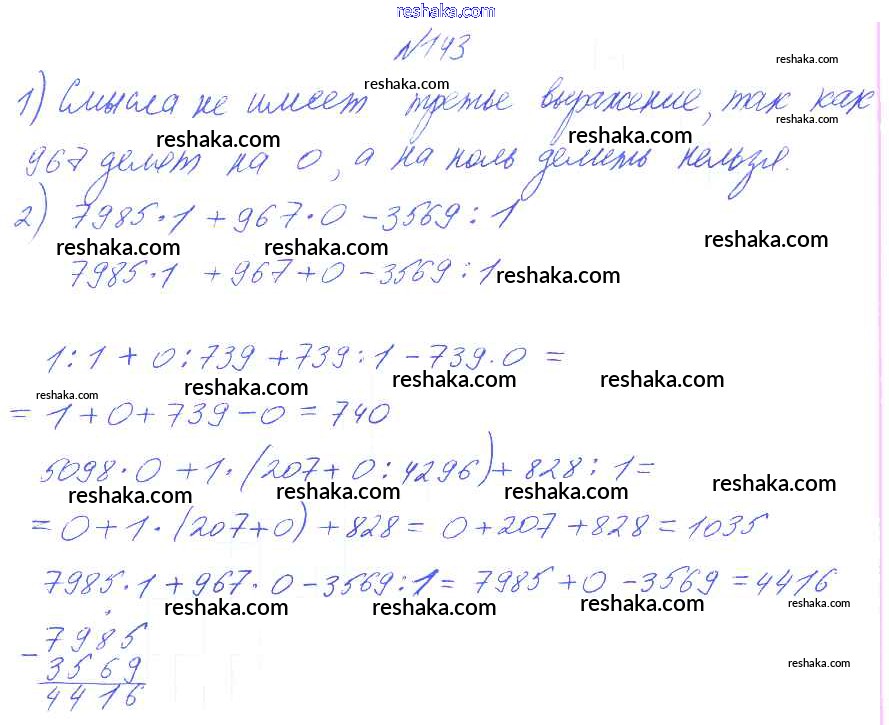 reshaka.com
№143
reshaka.com
reshaka.com
1) Смысла не имеет третье выражение, так как
reshaka.com
reshaka.com reshaka.com
967 делят на 0, а на ноль делить нельзя.
2) 7985·1 + 967·0 - 3569 : 1
reshaka.com reshaka.com reshaka.com
7985·1 + 967 + 0 - 3569 : 1
reshaka.com
1 : 1 + 0 : 739 + 739 : 1 - 739·0 =
reshaka.com reshaka.com reshaka.com reshaka.com
= 1 + 0 + 739 - 0 = 740
5098·0 + 1·(207 + 0 : 4296) + 828 : 1 =
reshaka.com reshaka.com reshaka.com reshaka.com
= 0 + 1·(207 + 0) + 828 = 0 + 207 + 828 = 1035
7985·1 + 967·0 - 3569 : 1 = 7985 + 0 - 3569 = 4416
reshaka.com reshaka.com reshaka.com reshaka.com
- 7985
3569
reshaka.com
4416